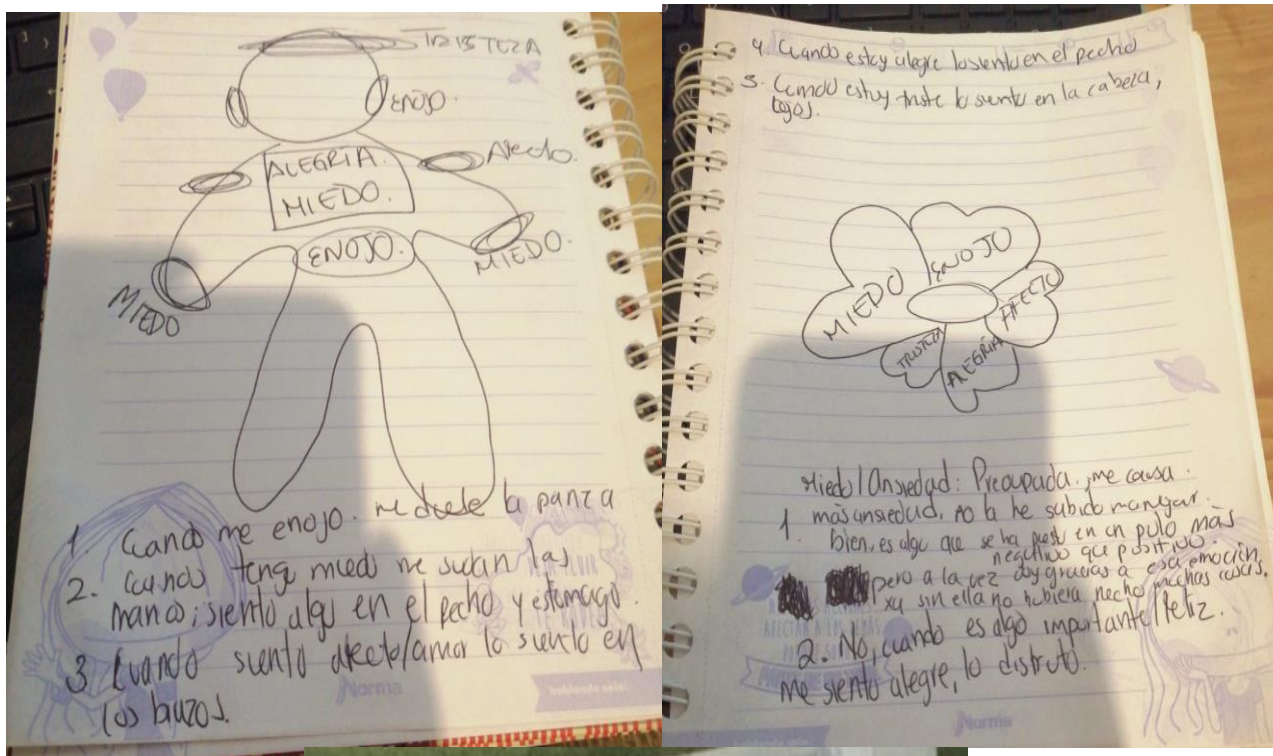 TRISTEZA
ENOJO.
ALEGRÍA.
MIEDO.
Afecto.
ENOJO.
MIEDO.
MIEDO
1. Cuando me enojo. me duele la panza
2. Cuando tengo miedo me sudan las
manos; siento algo en el pecho y estomago.
3 Cuando siento afecto/amor lo siento en
los brazos.
Norma
4. Cuando estoy alegre lo siento en el pecho
5. Cuando estoy triste lo siento en la cabeza,
ojos.
MIEDO
ENOJO
AFECTO
TRISTEZA
ALEGRÍA
Miedo/Ansiedad: Preocupada, me causa
1 más ansiedad, no la he sabido manejar
bien, es algo que se ha puesto en un polo más
negativo que positivo.
pero a la vez doy gracias a esa emoción,
xq sin ella no hubiera hecho muchas cosas.
2. No, cuando es algo importante/feliz.
me siento alegre, lo disfruto.
AFECTAR A LOS DEMÁS
Norma